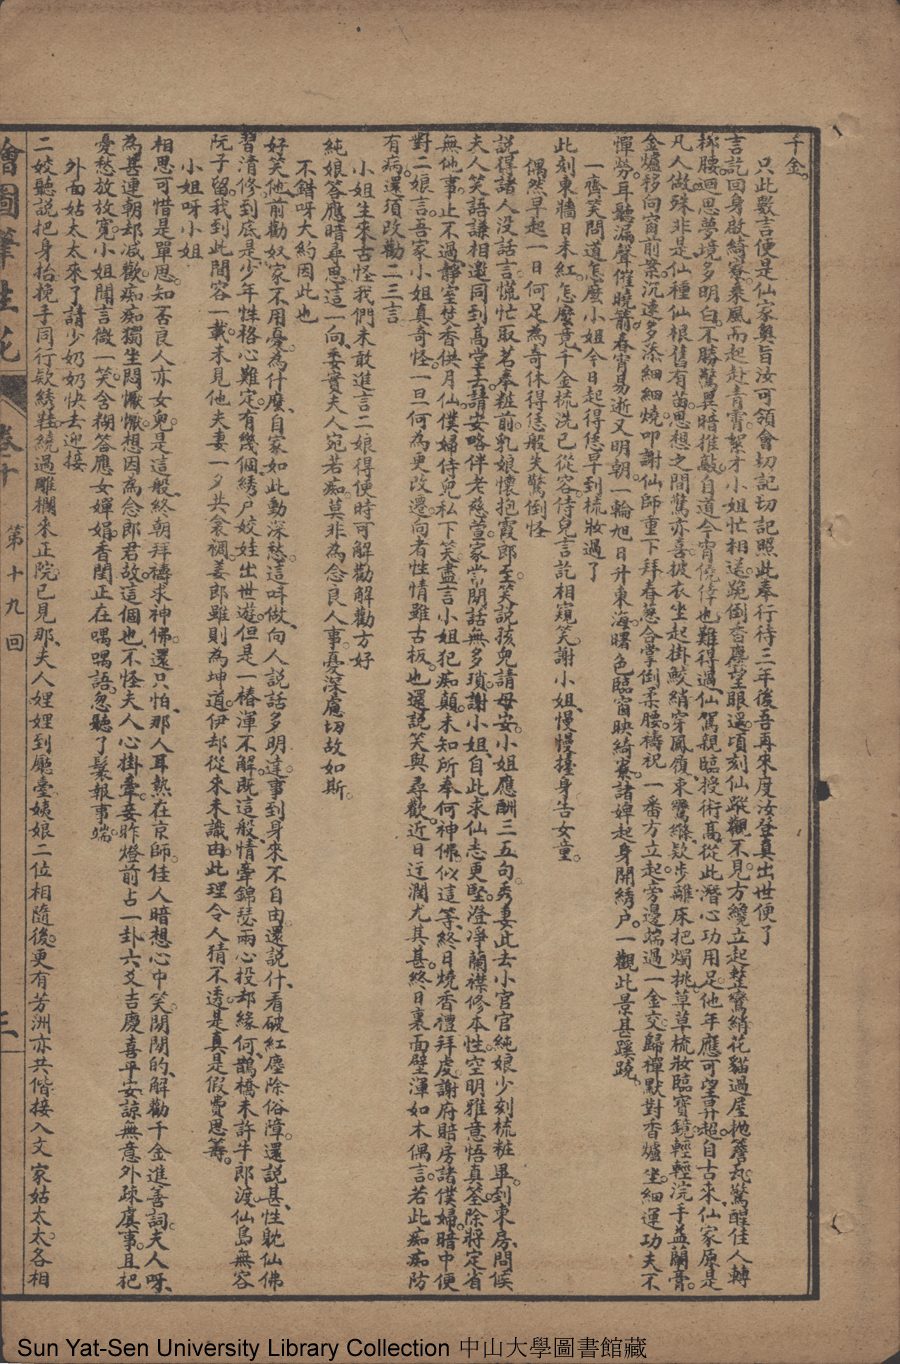 千金。
只此數言便是仙家奧旨汝可領會切記切記照此奉行待三年後吾再來度汝登真出世便了
言訖回身啟綺寮乘風而起赴青霄絮才小姐忙相送跪倒香塵望眼遥頃刻仙蹤觀不見方纔立起整鸞綃花貓過屋抛簷瓦驚醒佳人轉
柳腰廻思夢境多明白不勝驚異暗推敲自道今宵僥倖也難得過仙駕親臨授術高從此潛心功用足他年應可望昇超自古來仙家原是
凡人做殊非是仙種仙根舊有苗思想之間驚亦喜披衣坐起掛鮫綃穿鳳履束鸞縧欵步離床把燭挑草草梳妝臨寶鏡輕輕浣手盖蘭膏
金爐移向窗前案沉速多添細細燒叩謝仙師重下拜春葱合掌倒柔腰禱祝一番方立起旁邊端過一金交歸禪默對香爐坐細運功夫不
憚勞耳聽漏聲催曉箭春宵易逝又明朝一輪旭日升東海曙色臨窗映綺寮諸婢起身開綉户一觀此景甚蹊蹺
一齊笑問道怎麽小姐今日起得恁早到梳妝過了
此刻東牆日未紅怎麽竟千金梳洗已從容侍兒言訖相窺笑謝小姐慢慢擡身告女童
偶然早起一日何足為奇休得恁般失驚倒怪
説得諸人没話言慌忙取茗奉粧前乳娘懷抱霞郎至笑説孩兒請母安小姐應酬三五句秀妻此去小官官純娘少刻梳粧畢到東房問候
夫人笑語謙相邀同到高堂去請安略伴老慈萱家常閒話無多瑣謝小姐自此求仙志更堅澄净蘭襟修本性空明雅意悟真筌除將定省
無他事止不過靜室焚香供月仙僕婦侍兒私下笑盡言小姐犯痴顛未知所奉何神佛似這等終日燒香禮拜虔謝府賠房諸僕婦暗中便
對二娘言吾家小姐真奇怪一旦何為更改遷向者性情雖古板也還説笑與尋歡近日迂濶尤其甚終日裏面壁渾如木偶言若此痴痴防
有病還須改勸二三言
小姐生來古怪我們未敢進言二娘得便時可解勸解勸方好
純娘答應暗尋思這一向委實夫人宛若痴莫非為念良人事憂深慮切故如斯
不錯呀大約因此也
好笑他前勸奴家不用憂為什麽自家如此動深愁這呌做向人説話多明達事到身來不自由還說什看破紅塵除俗障還說甚性躭仙佛
習清修到底是少年性格心難定有幾個綉户姣娃出世遊但是一樁渾不解既這般情牽錦瑟兩心投却緣何鵲橋未許牛郎渡仙島無容
阮子留我到此間容一載未見他夫妻一夕共衾裯姜郎雖則為坤道伊却從來未識由此理令人猜不透是真是假費思籌
小姐呀小姐
相思可惜是單思知否良人亦女兒是這般終朝拜禱求神佛還只怕那人耳熱在京師佳人暗想心中笑閒閒的解勸千金進善詞夫人呀
為甚連朝却减歡痴痴獨坐悶懨懨想因為念郎君故這個也不怪夫人心掛牽妾昨燈前占一卦六爻吉慶喜平安諒無意外疎虞事且把
憂愁放放寬小姐聞言微一笑含糊答應女嬋娟香閨正在喁喁語忽聽了鬟報事端
外面姑太太來了請少奶奶快去迎接
二姣聽説把身抬挽手同行欵綉鞋繞過雕欄來正院已見那夫人娌娌到廳臺姨娘二位相隨後更有芳洲亦共偕接入文家姑太太各相
繪圖筆生花
卷十
第十九回
三
Sun Yat-Sen University Library Collection 中山大學圖書館藏